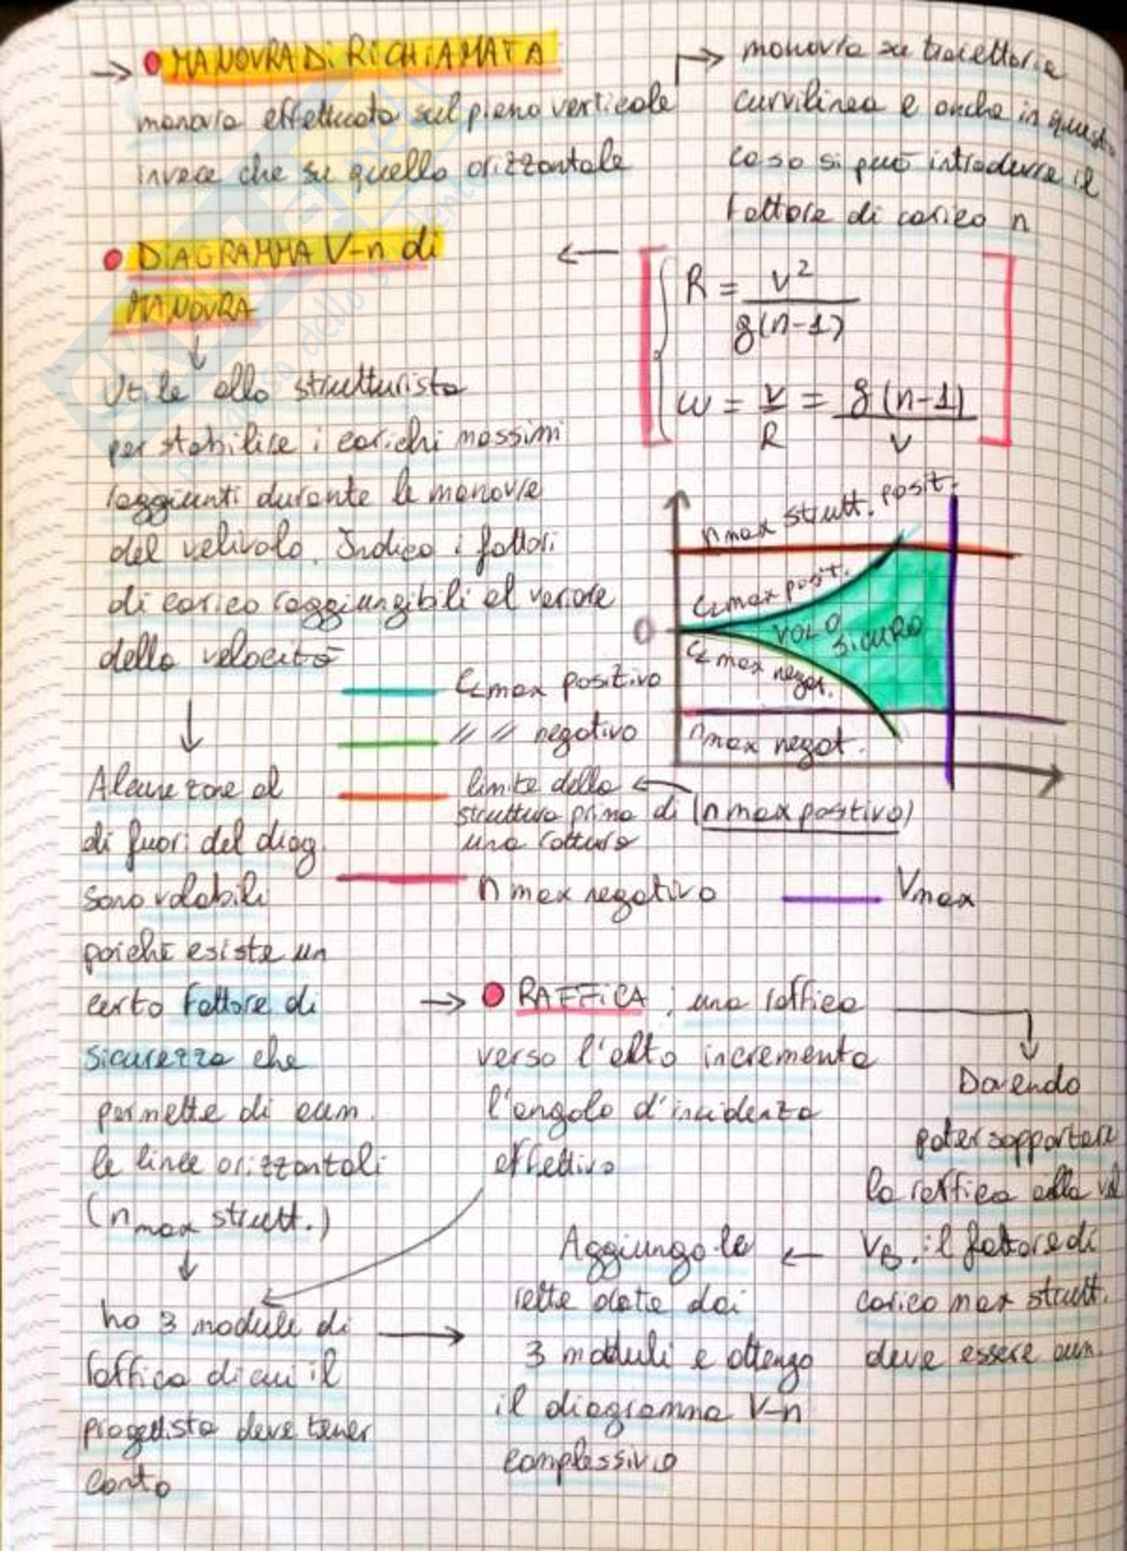 → • MANOVRA Di RiCHiAMATA
manovra effettuata sul piano verticale
invece che su quello orizzontale
→ manovra su traiettoria
curvilinea e anche in questo
caso si può introdurre il
fattore di carico n
R = v² / g(n-1)
ω = v/R = g(n-1) / v
←
• DIAGRAMMA V-n di
MANOVRA
↓
Utile allo strutturista
per stabilire i carichi massimi
raggiunti durante le manovre
del velivolo. Indica i fattori
di carico raggiungibili al variare
della velocità
n max strutt. posit.
CL max posit.
VOLO
SICURO
0
CL max negat.
n max negat.
CL max positivo
// // negativo
limite della ←
struttura prima di (n max positivo)
una rottura
n max negativo
Vmax
↓
Alcune zone al
di fuori del diag.
sono volabili
poiché esiste un
certo fattore di
sicurezza che
permette di aum.
le linee orizzontali
(nmax strutt.)
↓
ho 3 moduli di
raffica di cui il
progettista deve tener
conto
→ • RAFFiCA : una raffica
verso l'alto incrementa
l'angolo d'incidenza
effettivo
Dovendo
poter sopportare
la raffica alla vel
VB, il fattore di
carico max strutt.
deve essere aum.
← 
Aggiungo le
rette date dai
3 moduli e ottengo
il diagramma V-n
complessivo